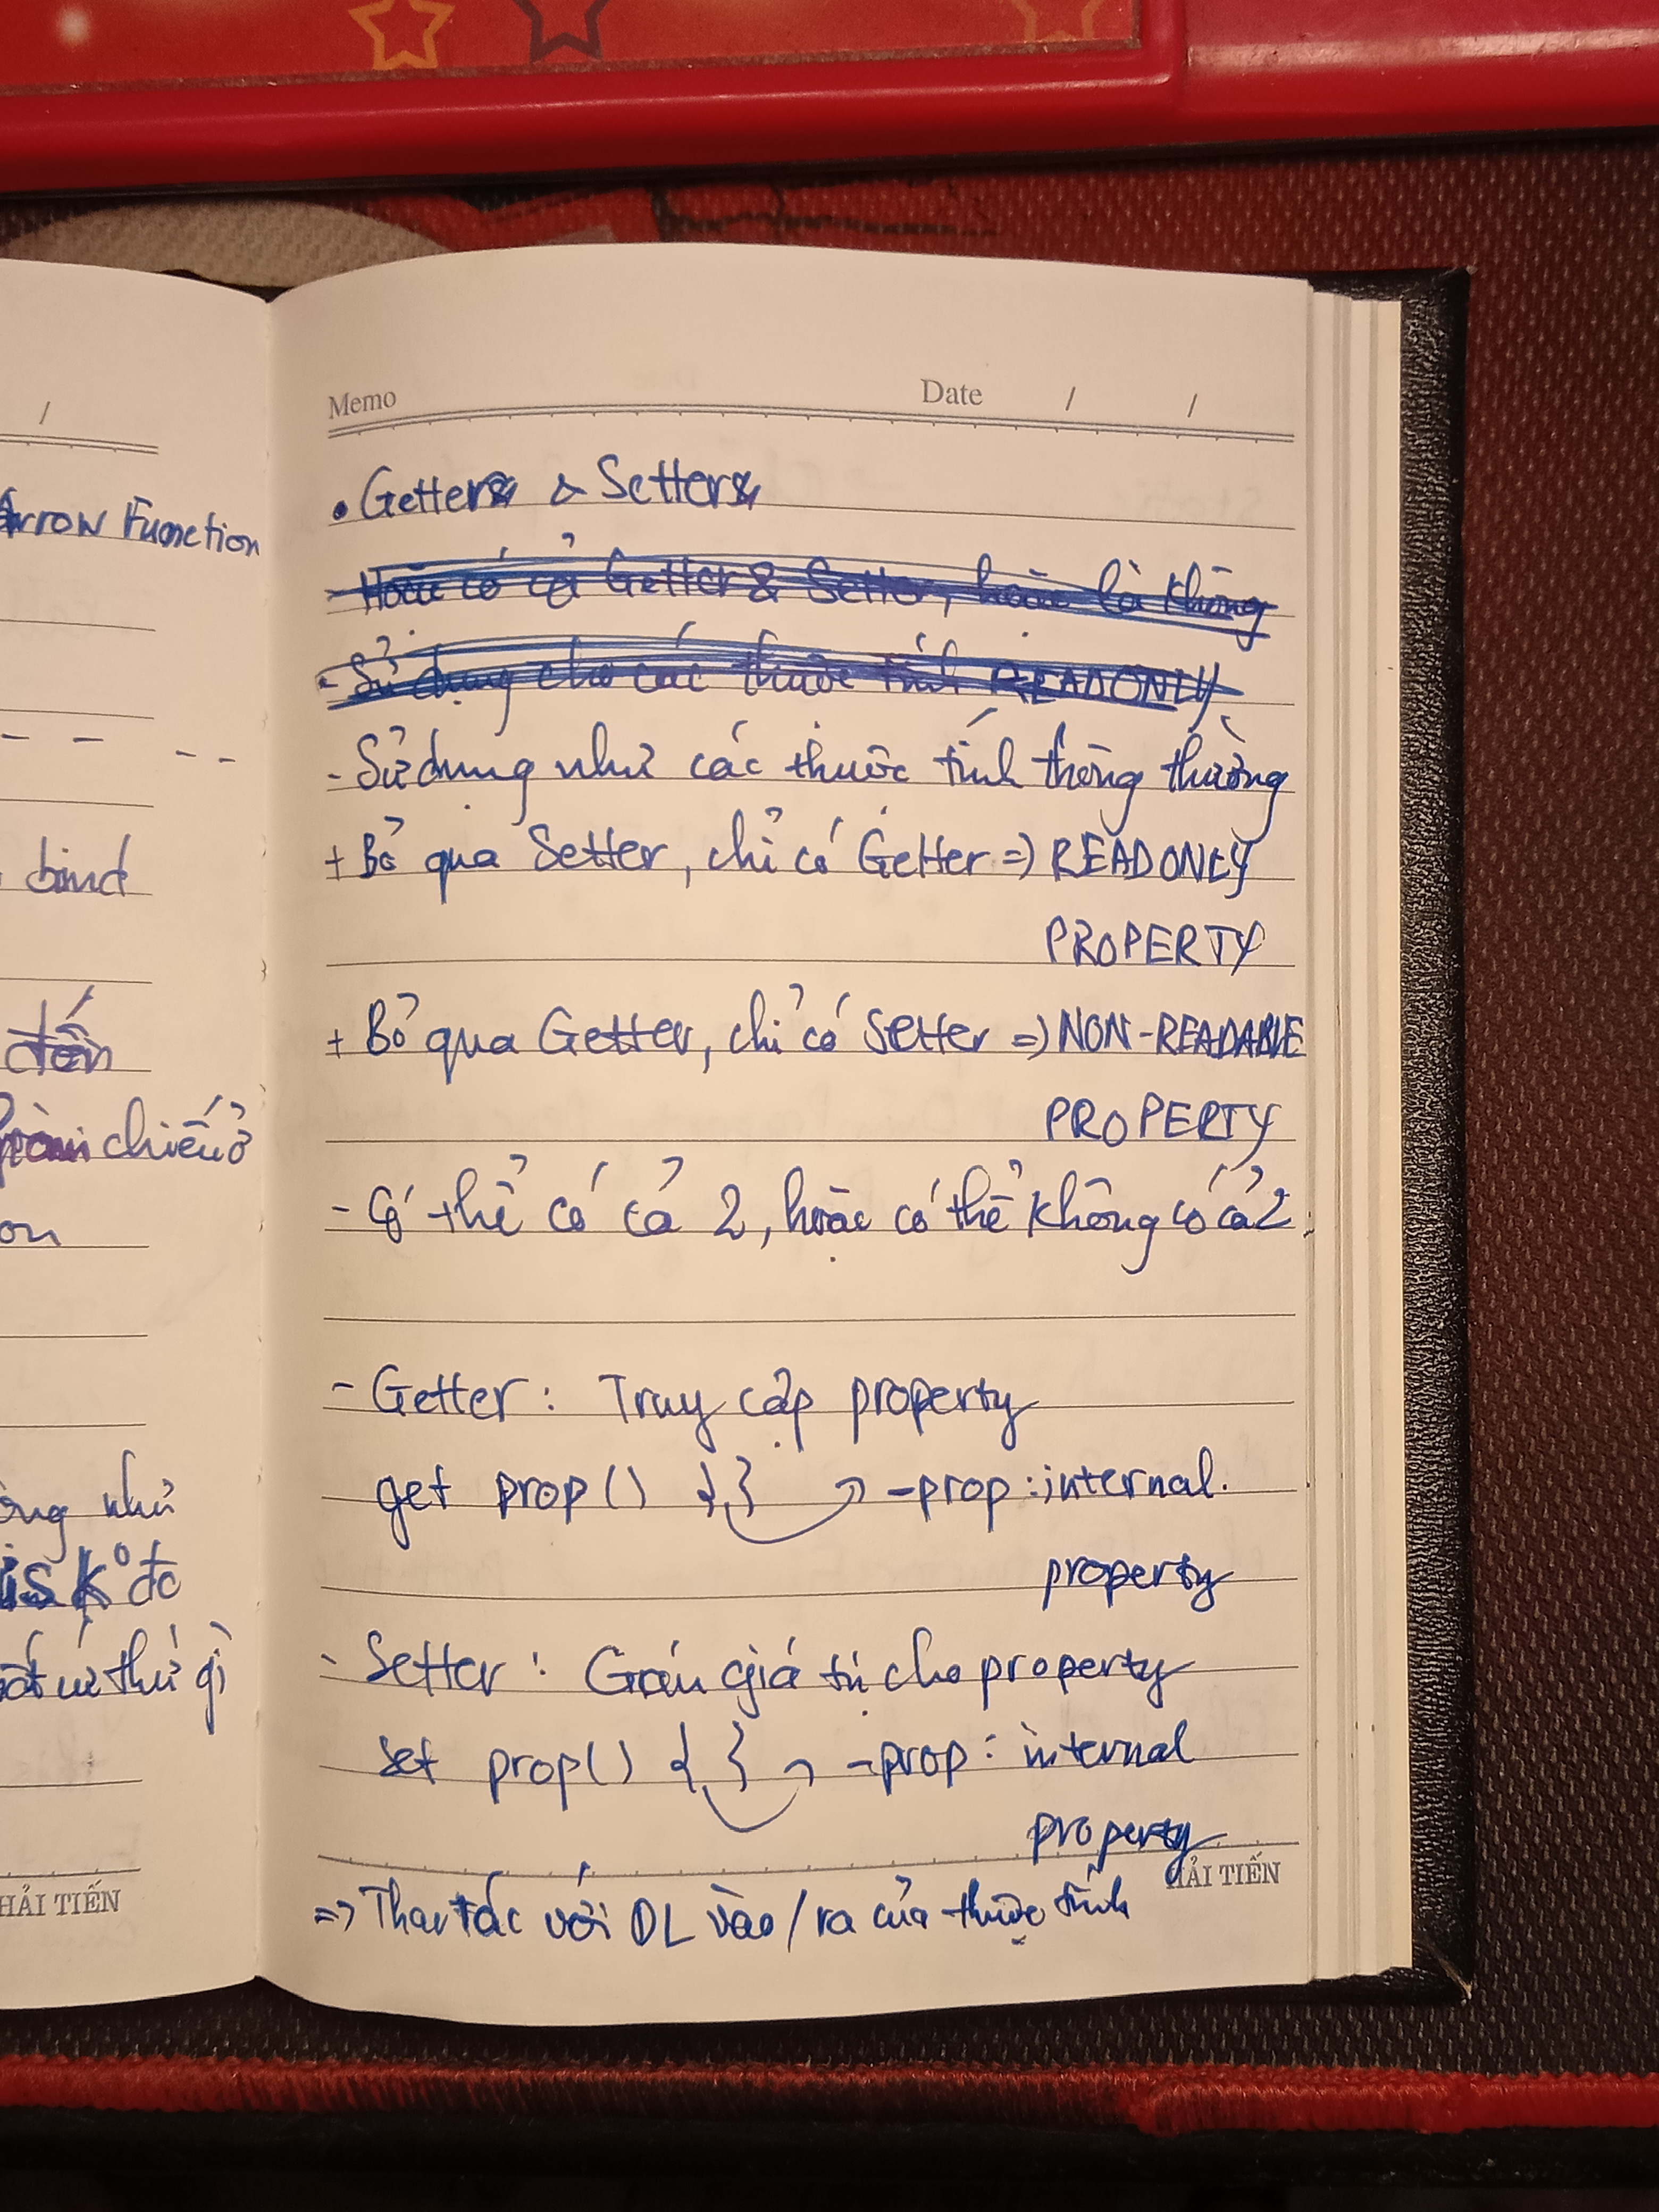 /
Arrow Function
bind
đến
chiếu ở
on
ông như
is k° đc
cứ thứ gì
HẢI TIẾN
Memo
Date / /
• Getter & Setter
- Hoặc có cả Getter & Setter, hoặc là không
- Sử dụng cho các thuộc tính READONLY
- Sử dụng như các thuộc tính thông thường
+ Bỏ qua Setter, chỉ có Getter => READONLY
PROPERTY
+ Bỏ qua Getter, chỉ có Setter => NON-READABLE
PROPERTY
- Có thể có cả 2, hoặc có thể không có cả 2
- Getter: Truy cập property
get prop() {} -> _prop: internal.
property
- Setter: Gán giá trị cho property
set prop() { } -> _prop: internal
property
HẢI TIẾN
=> Thao tác với DL vào/ra của thuộc tính